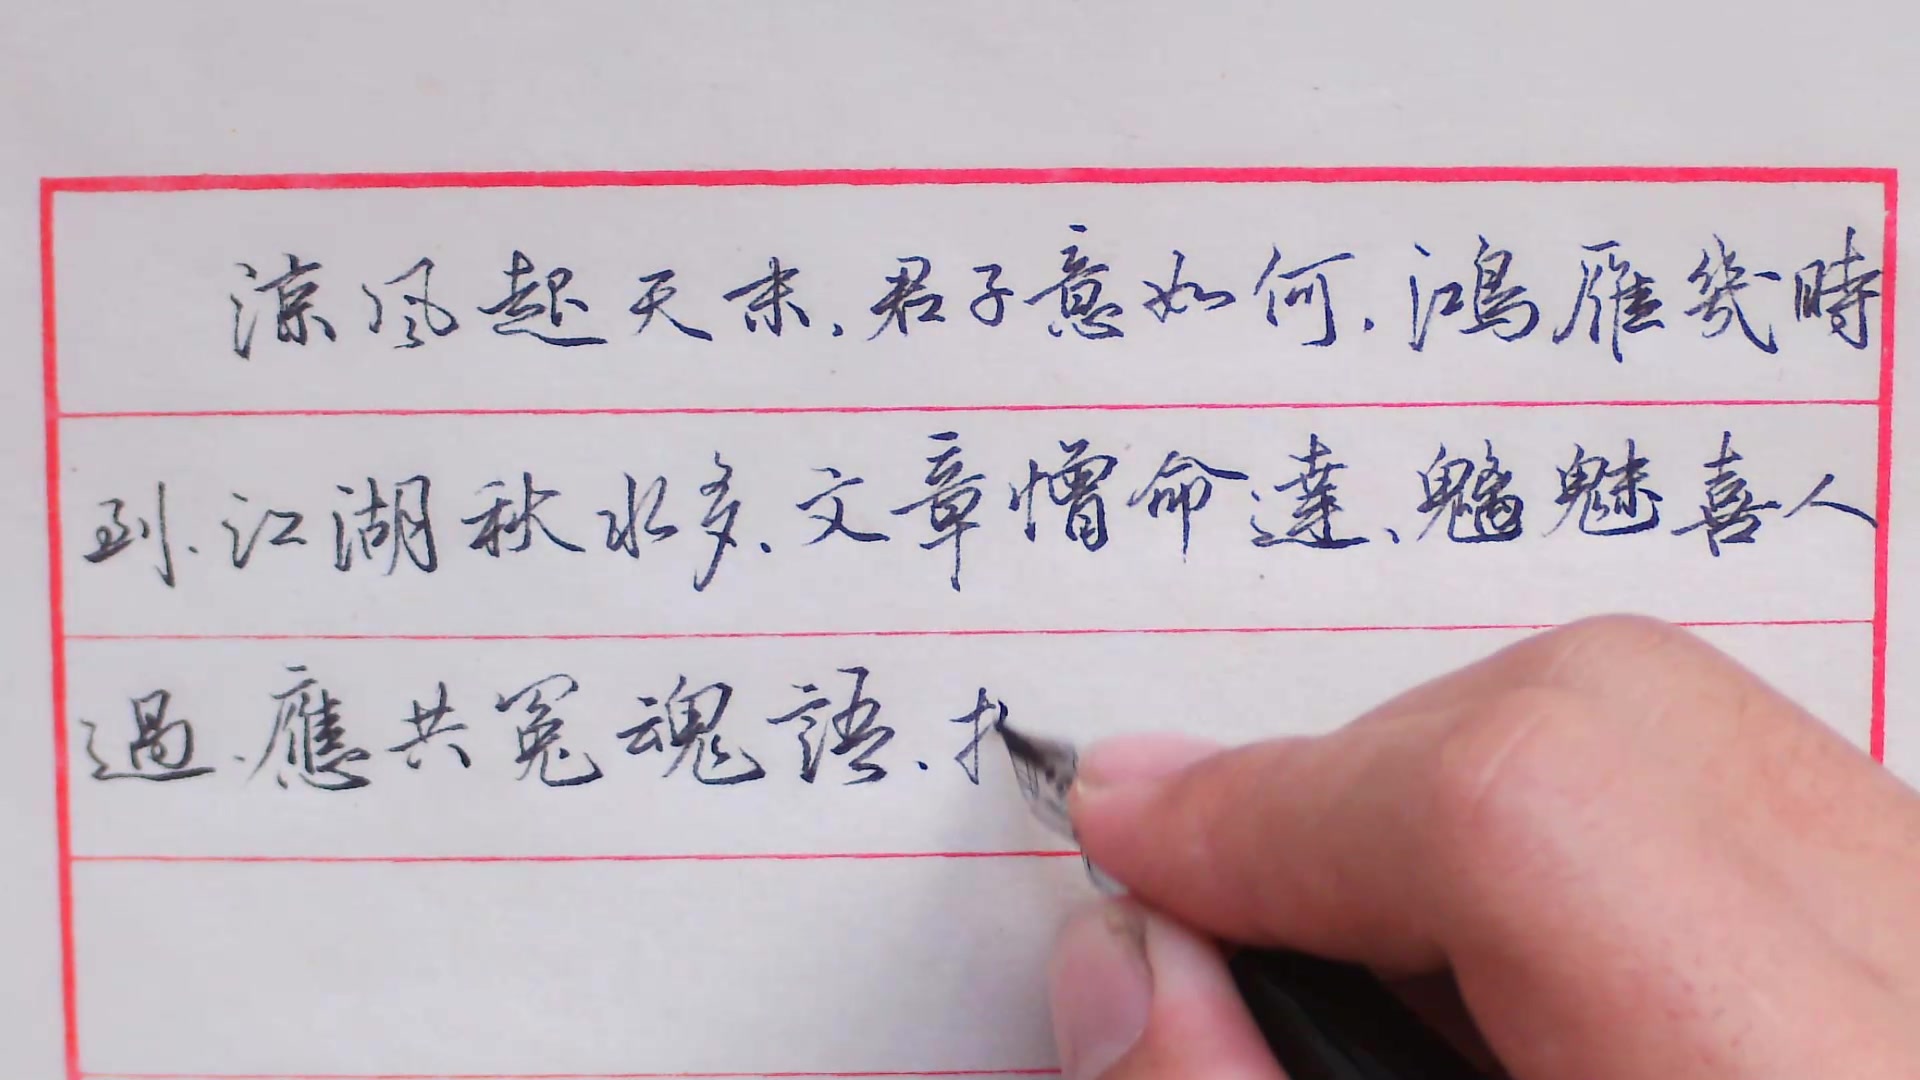 涼風起天末.君子意如何.鴻雁幾時
到.江湖秋水多.文章憎命達.魑魅喜人
過.應共冤魂語.